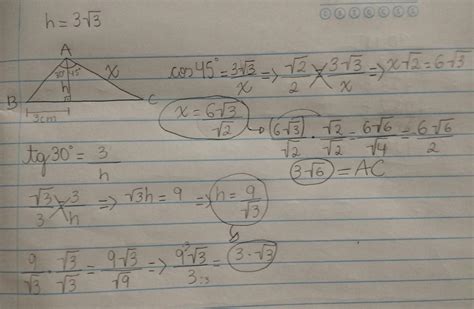 h = 3√3
A
30° 45° x
h
B C
3cm
cos 45° = 3√3/x => √2/2 = 3√3/x => x√2 = 6√3
x = 6√3/√2 → 6√3/√2 · √2/√2 = 6√6/√4 = 6√6/2
3√6 = AC
tg 30° = 3/h
√3/3 3/h => √3h = 9 => h = 9/√3
9/√3 · √3/√3 = 9√3/√9 => 9³√3/3:3 = 3·√3